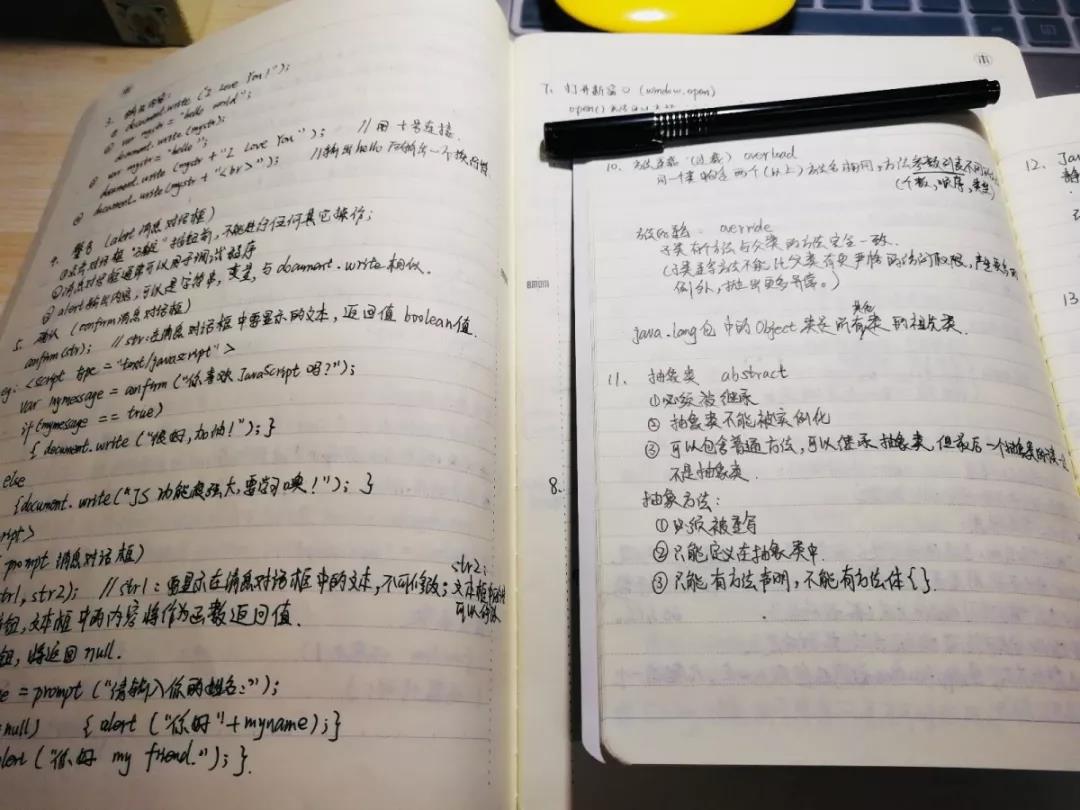 3. 输出内容:
① document.write ("I Love You!");
② var mystr = "hello world";
document.write (mystr);
③ var mystr = "hello";
document.write (mystr + "I Love You"); //用+号连接.
④ document.write(mystr + "<br>"); //输出hello 后输出一个换行符
4. 警告 (alert 消息对话框)
①点击对话框"确定"按钮前,不能进行任何其它操作;
②消息对话框通常可以用于调试程序
③ alert输出内容,可以是字符串,变量,与document.write相似.
5. 确认 (confirm 消息对话框)
confirm(str); //str:在消息对话框中要显示的文本,返回值boolean值.
eg: <script type="text/javascript">
var mymessage = confirm ("你喜欢JavaScript吗?");
if(mymessage == true)
{ document.write ("很好,加油!"); }
else
{document.write("JS功能很强大,要学习噢!"); }
ript>
prompt 消息对话框)
str1, str2); //str1:要显示在消息对话框中的文本,不可修改; str2:文本框中的内容可以修改
钮,文本框中的内容将作为函数返回值.
钮,将返回null.
e = prompt ("请输入你的姓名:");
=null) { alert ("你好"+myname);}
alert ("你好 my friend."); }
7. 打开新窗口 (window.open)
open()
8.
10. 方法重载 (过载) overload
同一个类中包含两个(以上)方法名相同,方法参数列表不同
(个数,顺序,类型)
override
子类有个方法与父类的方法完全一致.
(子类重写方法不能比父类有更严格的访问权限,产生更多的
例外,抛出更多异常。)
java.lang包中的Object类是所有其他类的祖先类.
11. 抽象类 abstract
①必须被继承
② 抽象类不能被实例化
③ 可以包含普通方法,可以继承抽象类,但最后一个抽象类的
不是抽象类.
抽象方法:
①必须被重写
②只能定义在抽象类中
③ 只能有方法声明,不能有方法体{}.
12. Jav
静
13